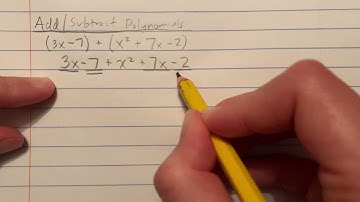 Add/Subtract Polynomials
(3x-7) + (x² + 7x -2)
3x-7 + x² + 7x -2